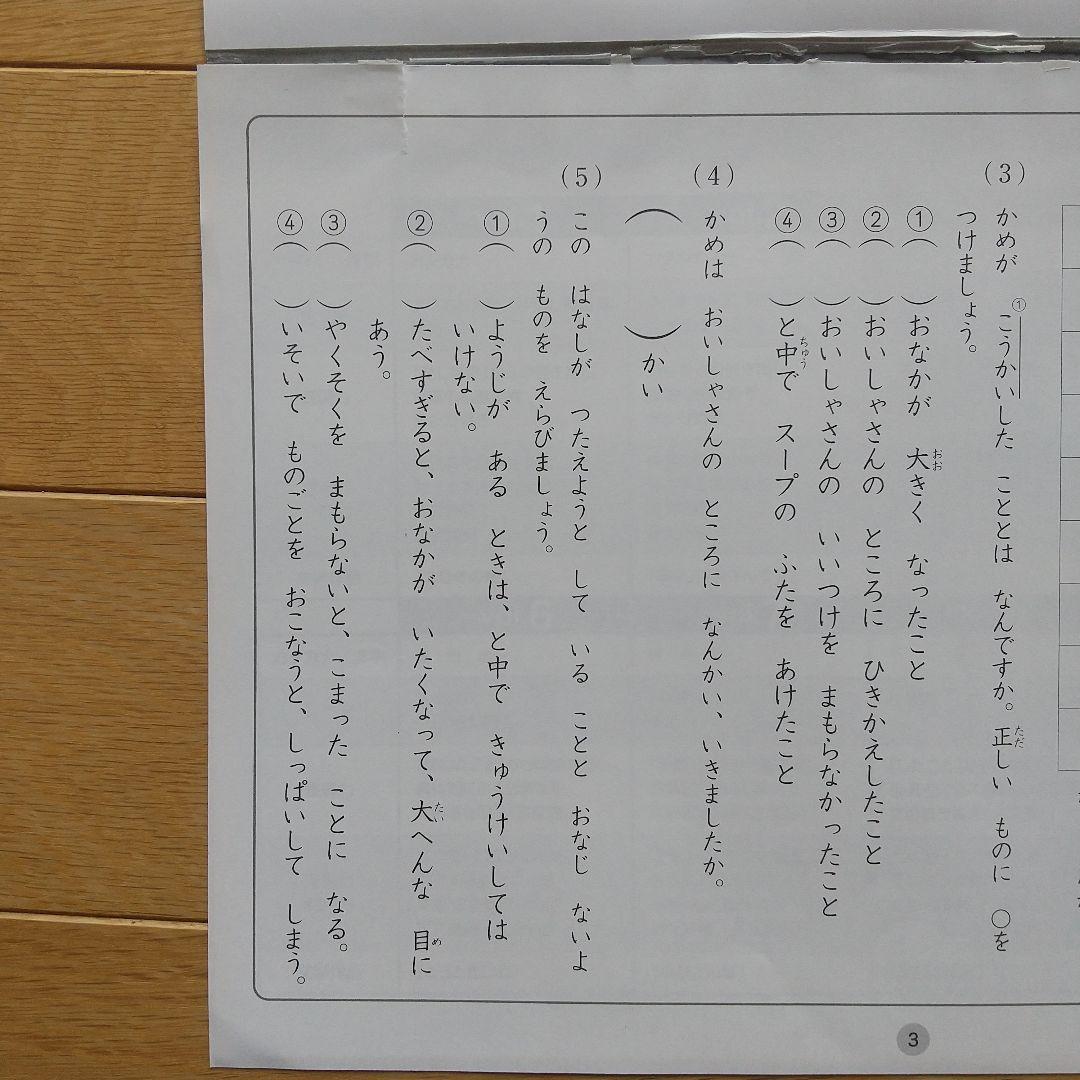 (3) かめが ①こうかいした こととは なんですか。正しい ものに ○を
つけましょう。
①( )おなかが 大きく なったこと
②( )おいしゃさんの ところに ひきかえしたこと
③( )おいしゃさんの いいつけを まもらなかったこと
④( )と中で スープの ふたを あけたこと
(4) かめは おいしゃさんの ところに なんかい、いきましたか。
( )かい
(5) この はなしが つたえようと して いる ことと おなじ ないよ
うの ものを えらびましょう。
①( )ようじが ある ときは、と中で きゅうけいしては
いけない。
②( )たべすぎると、おなかが いたくなって、大へんな 目に
あう。
③( )やくそくを まもらないと、こまった ことに なる。
④( )いそいで ものごとを おこなうと、しっぱいして しまう。
3